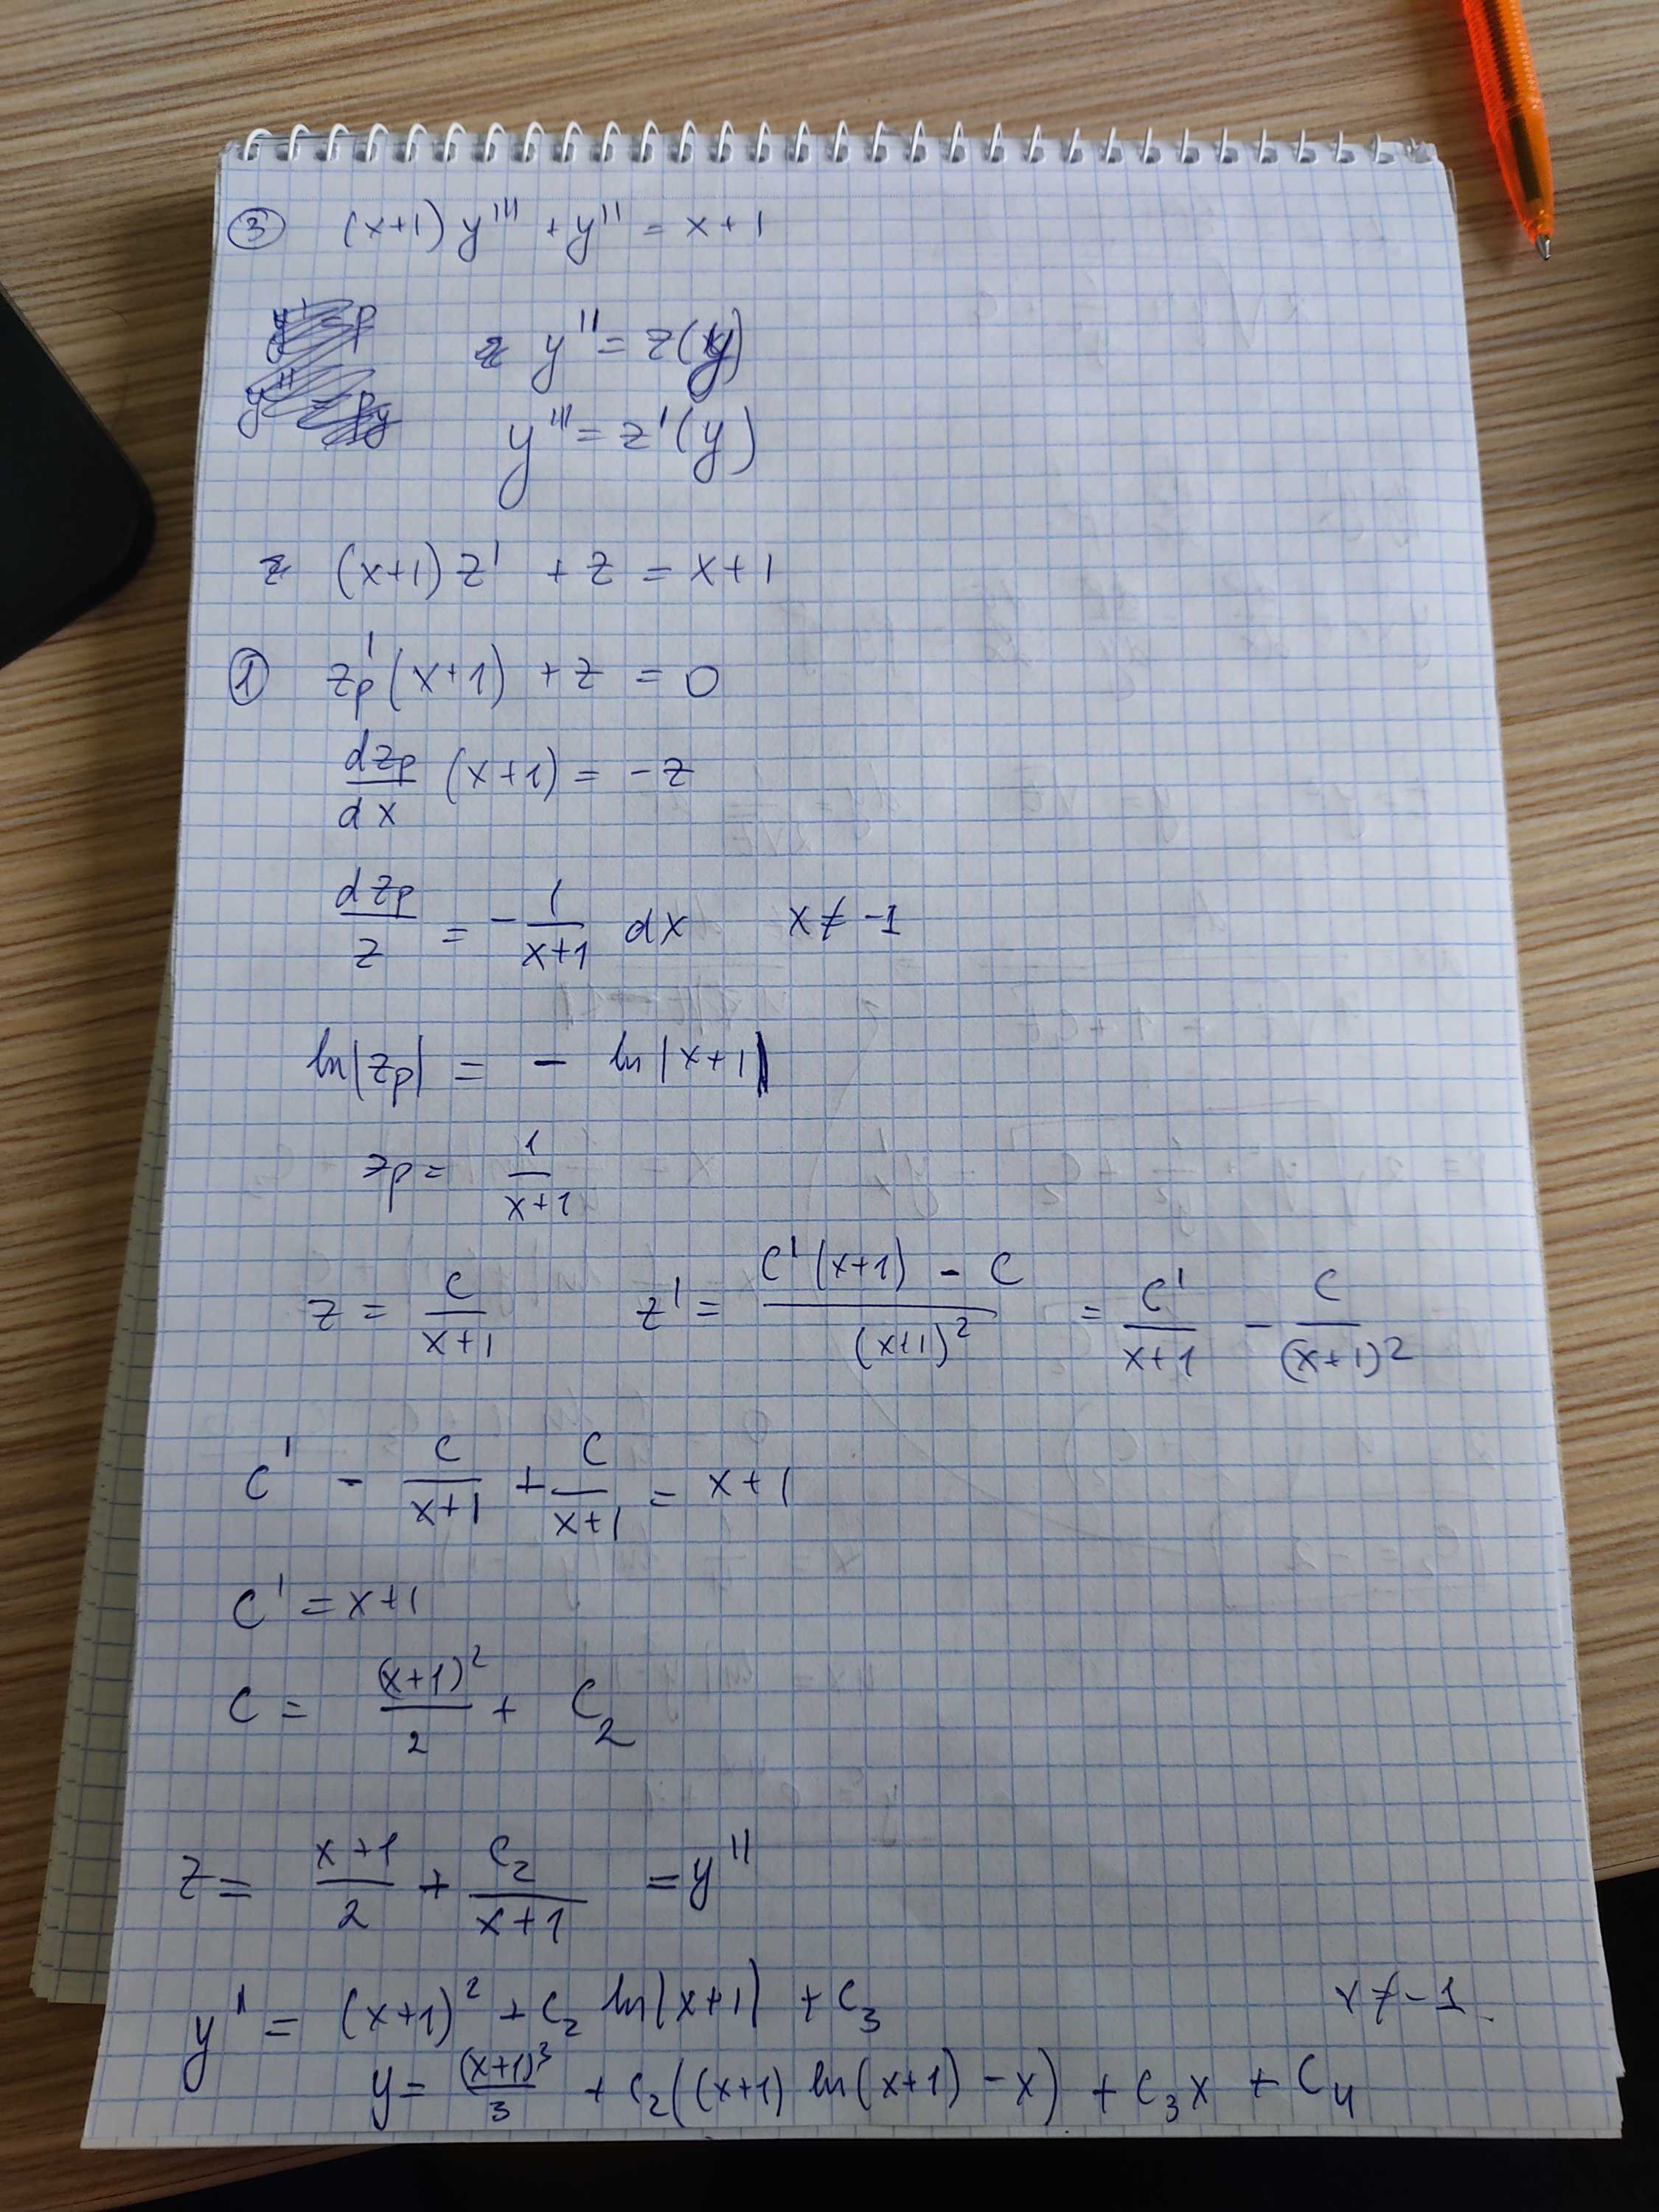 ③ (x+1) y''' + y'' = x+1
y'' = z(y)
y''' = z'(y)
(x+1) z' + z = x+1
① zp' (x+1) + z = 0
dzp/dx (x+1) = -z
dzp/z = - 1/(x+1) dx x ≠ -1
ln|zp| = - ln|x+1|
zp = 1/(x+1)
z = C/(x+1) z' = (C'(x+1) - C)/(x+1)² = C'/(x+1) - C/(x+1)²
C' - C/(x+1) + C/(x+1) = x+1
C' = x+1
C = (x+1)²/2 + C₂
z = (x+1)/2 + C₂/(x+1) = y''
y' = (x+1)² + C₂ ln|x+1| + C₃ x ≠ -1
y = (x+1)³/3 + C₂((x+1) ln(x+1) - x) + C₃x + C₄